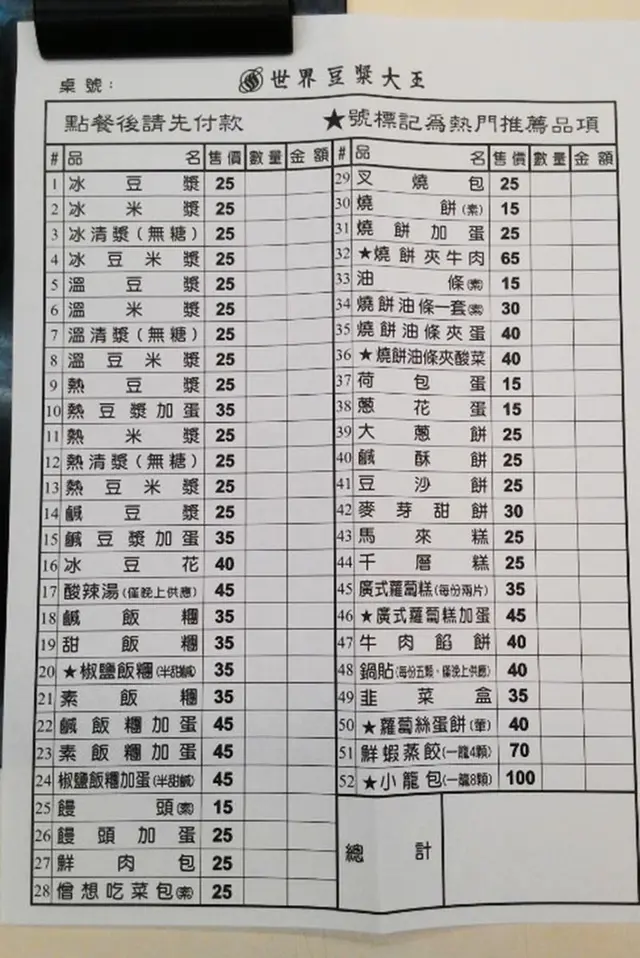 桌號：
世界豆漿大王
點餐後請先付款 ★號標記為熱門推薦品項
# 品名 售價 數量 金額
1 冰豆漿 25
2 冰米漿 25
3 冰清漿(無糖) 25
4 冰豆米漿 25
5 溫豆漿 25
6 溫米漿 25
7 溫清漿(無糖) 25
8 溫豆米漿 25
9 熱豆漿 25
10 熱豆漿加蛋 35
11 熱米漿 25
12 熱清漿(無糖) 25
13 熱豆米漿 25
14 鹹豆漿 25
15 鹹豆漿加蛋 35
16 冰豆花 40
17 酸辣湯(僅晚上供應) 45
18 鹹飯糰 35
19 甜飯糰 35
20 ★椒鹽飯糰(半甜鹹) 35
21 素飯糰 35
22 鹹飯糰加蛋 45
23 素飯糰加蛋 45
24 椒鹽飯糰加蛋(半甜鹹) 45
25 饅頭(素) 15
26 饅頭加蛋 25
27 鮮肉包 25
28 僧想吃菜包(素) 25
# 品名 售價 數量 金額
29 叉燒包 25
30 燒餅(素) 15
31 燒餅加蛋 25
32 ★燒餅夾牛肉 65
33 油條(素) 15
34 燒餅油條一套(素) 30
35 燒餅油條夾蛋 40
36 ★燒餅油條夾酸菜 40
37 荷包蛋 15
38 蔥花蛋 15
39 大蔥餅 25
40 鹹酥餅 25
41 豆沙餅 25
42 麥芽甜餅 30
43 馬來糕 25
44 千層糕 25
45 廣式蘿蔔糕(每份兩片) 35
46 ★廣式蘿蔔糕加蛋 45
47 牛肉餡餅 40
48 鍋貼(每份五顆，僅晚上供應) 40
49 韭菜盒 35
50 ★蘿蔔絲蛋餅(葷) 40
51 鮮蝦蒸餃(一籠4顆) 70
52 ★小龍包(一籠8顆) 100
總計